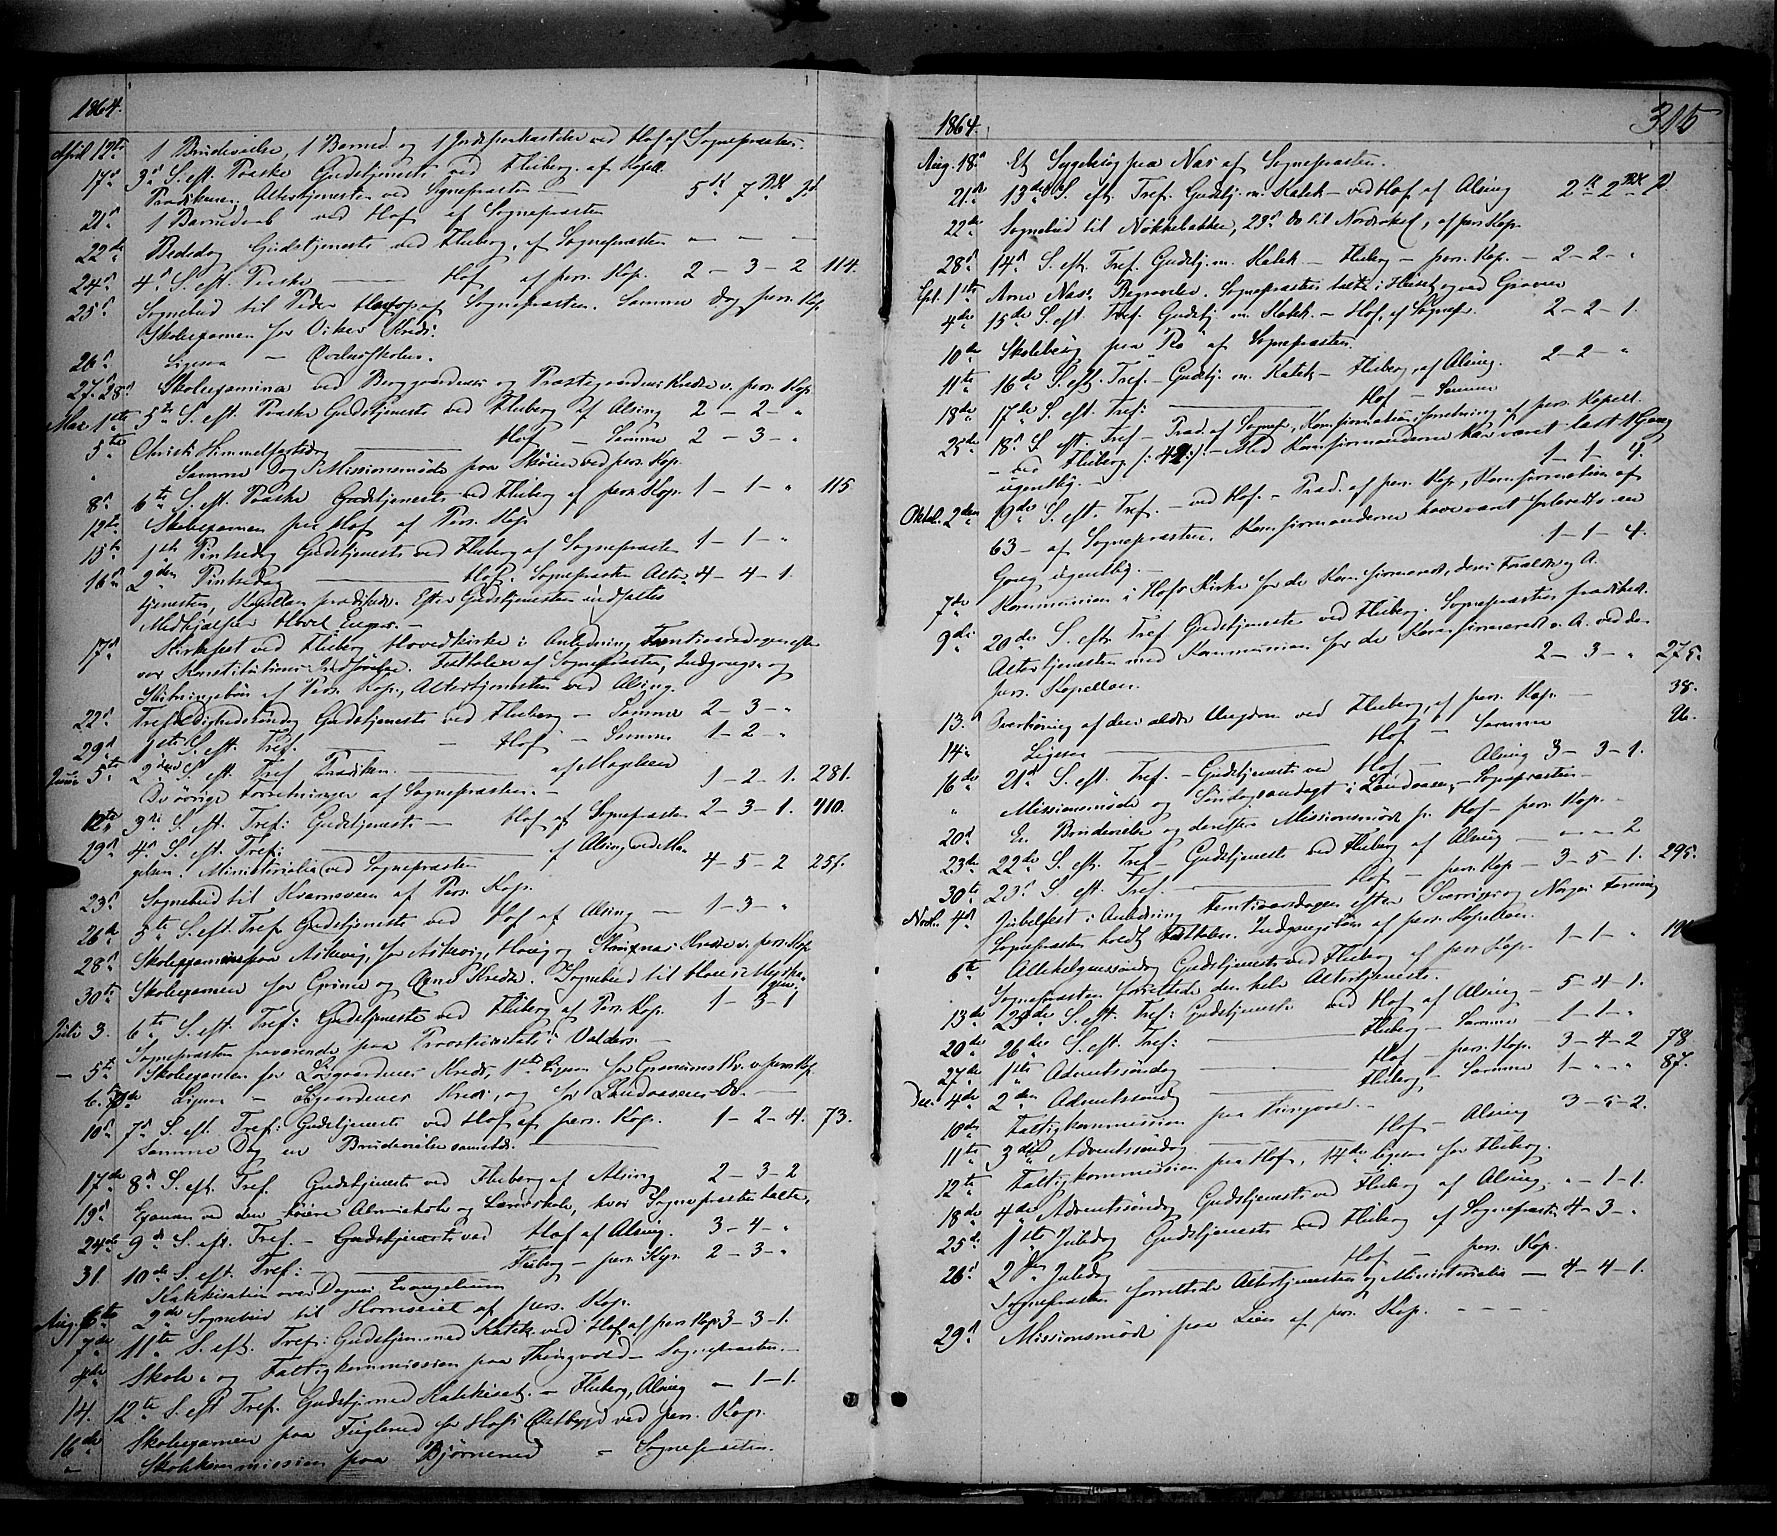 1864.
April 12te 1 Brudevielse, 1 Barned. og 1 Jordpaakastelse ved Hof af Sognepræsten.
17de 3die S. eft. Paaske Gudstjeneste ved Fluberg af Kapell.
Prædikenen, Altertjenesten ved Sognepræsten — 5 7 3
21de 1 Barnedaab ved Hof af Sognepræsten
22de Bededag Gudstjeneste ved Fluberg, af Sognepræsten — — —
24de 4de S. eft. Paaske — Hof af pers. Kap. 2 - 3 - 2 114.
25de Sognebud til Peder af Sognepræsten. Samme Dag pers. Kap.
Skoleexamen for Vikes Kreds.
26de Ligesaa — Skolen.
27. 28de Skoleexamina ved Berggaardens og Præstegaardens Kredse v. pers. Kap.
Mai 1ste 5te S. eft. Paaske Gudstjeneste ved Fluberg af Alsing 2 - 2 - "
5te Christi Himmelfartsdag — Hof — Samme 2 - 3 - "
" Samme Dag Missionsmøde paa Skøien ved pers. Kap.
8de 6te S. eft. Paaske Gudstjeneste ved Fluberg af pers. Kap. 1 - 1 - " 115
12te Skoleexamen paa Hof af Pers. Kap.
15te 1ste Pintsedag Gudstjeneste ved Fluberg af Sognepræsten 1 - 1 - "
16de 2den Pintsedag — Hof. Sognepræsten Alter- 4 - 4 - 1.
tjenesten, Kapellan prædikede. Efter Gudstjenesten indsattes
Medhjælper Enger. —
17de Kirkefest ved Fluberg Hovedkirke i Anledning Femtiaarsdagen efter
vor Konstitutions Indførelse. Festtalen af Sognepræsten, Indgangs- og
Slutningsbøn af Pers. Kap., Altertjenesten ved Alsing.
22de Trefoldighedssøndag Gudstjeneste ved Fluberg — Samme 2 - 3 - "
29de 1ste S. eft. Tref. — Hof — Samme 1 - 2 - "
Juni 5te 2den S. eft. Tref. Prædiken — af 1 - 2 - 1. 281.
De øvrige Forretninger af Sognepræsten. —
12te 3die S. eft. Tref: Gudstjeneste — Hof af Sognepræsten 2 - 3 - 1. 410.
19de 4de S. eft. Tref: — af Alsing
Ministerialia ved Sognepræsten 4 - 5 - 2
23de Sognebud til af Pers. Kap.
26de 5te S. eft. Tref Gudstjeneste ved Hof af Alsing — 1 - 3 - "
28de Skoleexamen paa Askvig, for Askvig, og Kredse v. pers. Kap.
30te Skoleexamen for Grime og Kredse. Sognebud til
Juli 3. 6te S. eft. Tref: Gudstjeneste ved Fluberg af Pers. Kap. 1 - 3 - 1
Sognepræsten fraværende paa i Valders. —
— 5te Skoleexamen for Kreds, ligesaa for Kr. v. pers. Kap.
6. 7de Ligesaa — Kreds, og for Landaasens Do. —
10de 7de S. eft. Tref: Gudstjeneste ved Hof af pers. Kap. 1 - 2 - 4. 73.
Samme Dag en Brudevielse sammesteds.
17de 8de S. eft. Tref. Gudstjeneste ved Fluberg af Alsing 2 - 3 - 2
19de Examen ved den høiere Almueskole og Lærerskole, hvor Sognepræsten talte.
24de 9de S. eft. Tref. — Gudstjeneste ved Hof af Alsing. 3 - 4 - "
31. 10de S. eft. Tref: — Fluberg — pers. Kap. 2 - 3 - "
Katekisation over Dagens Evangelium
Aug. 2de Sognebud til Hornseiet af pers. Kap.
7de 11te S. eft. Tref: Gudstjen. med Katek. ved Hof af pers. Kap. 3 - 3 - 1.
Skole- og Fattigkommission paa Thingvold — Sognepræsten. —
14. 12te S. eft Tref. Gudstj. med Katekisat. — Fluberg, Alsing — 1 - 1.
16de Skoleexamen paa Fuglerud for Hofs Østbygd ved pers. Kap.
" Skolekommission paa Bjørnerud — Sognepræsten.
1864.
315
Aug. 18de Et Sygebesøg paa Næs af Sognepræsten.
21de 13de S. eft. Tref. Gudstj. m. Katek — ved Hof af Alsing 2 2
22de Sognebud til Nøkkebakken, 23de Do til , af pers. Kap.
28de 14de S. eft. Tref. Gudstj. m. Katek — Fluberg — pers. Kap. — 2 - 2 - "
Spt. 1ste Arne Næs's Begravelse. Sognepræsten talte i Huset og ved Graven
4de 15de S. eft. Tref. Gudstj. m. Katek. — Hof, af Sognepr. 2 - 2 - 1.
10de Skolebesøg paa "Ro" af Sognepræsten.
11te 16de S. eft. Tref. — Gudstj. m. Katek — Fluberg, af Alsing. 2 - 2 - "
18de 17de S. eft. Tref: — Hof — Samme
25de 18de S. eft. Tref — Præd. af Sognepr., Konfirmationsforretning af pers. Kapell.
— ved Fluberg /: 42 :/ — Med Konfirmanderne har været læst 1 Gang
ugentlig. — 1 - 1 - 4.
Oktob. 2den 19de S. eft. Tref. — ved Hof. — Præd. af pers. Kap., Konfirmation af
63 — af Sognepræsten. Konfirmanderne have været forberedte een
Gang ugentlig. — 1 - 1 - 4.
7de Kommunion i Hofs Kirke for de Konfirmerede, deres Forældre o. A.
9de 20de S. eft. Tref Gudstjeneste ved Fluberg. Sognepræsten prædikede.
Altertjenesten med Kommunion for de Konfirmerede o. A. ved den
pers. Kapellan. 2 - 3 - " 275.
13. Overhøring af den ældre Ungdom ved Fluberg, af pers. Kap. — 38.
14. Ligesaa — Hof — Samme 26.
16de 21de S. eft. Tref. — Gudstjeneste ved Hof — Alsing 3 - 3 - 1.
" Missionsmøde og Søndagsandagt i Landaasen, — Sognepræsten —
20de En Brudevielse og derefter Missionsmøde paa Hof — pers. Kap. —
23de 22de S. eft. Tref — Gudstjeneste ved Fluberg af Alsing — " - " - 2
30te 23de S. eft. Tref. — Hof — pers. Kap — 3 - 5 - 1. 295.
Novbr. 4de Jubelfest i Anledning Femtiaarsdagen efter Sverriges og Norges Forening
Sognepræsten holdt Festtalen. Indgangsbøn af pers. Kapellan.
6te Allehelgenssøndag Gudstjeneste ved Fluberg af pers. Kap. 1 - 1 - "
Sognepræsten forrettede den hele Altertjeneste.
13de 25de S. eft. Tref: Gudstjeneste ved Hof af Alsing — 5 - 4 - 1.
20de 26de S. eft. Tref: — Fluberg — Samme — 1 - 1 - "
27de 1ste Adventssøndag — Hof — pers. Kap. 3 - 4 - 2 78
Dec. 4de 2den Adventssøndag — Fluberg — Samme 1 - " - " 87.
10de Fattigkommission paa Thingvold —
11te 3die Adventssøndag — Hof — Alsing 3 - 5 - 2.
12te Fattigkommission paa Hof, 14de ligesaa for Fluberg.
18de 4de Adventssøndag Gudstjeneste ved Fluberg af Alsing. " - 1 - 1.
25de 1ste Juledag Gudstjeneste ved Fluberg af Sognepræsten 4 - 3 - "
26de 2den Juledag — Hof — pers. Kap.
Sognepræsten forrettede Altertjenesten og Ministerialia — 4 - 4 - 1.
29de Missionsmøde paa Lien af pers. Kap. — — — —